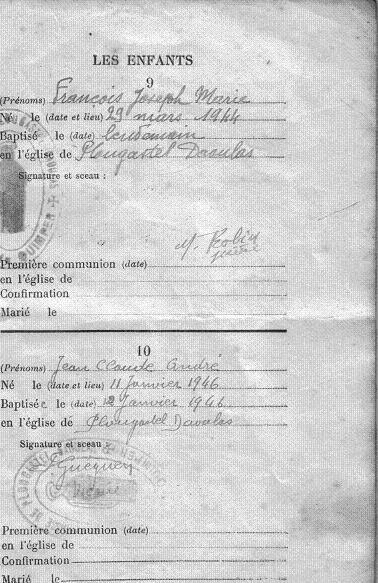 LES ENFANTS
9
(Prénoms) François Joseph Marie
Né le (date et lieu) 29 mars 1944
Baptisé le (date) lendemain
en l'église de Plougastel Daoulas
Signature et sceau :
M. Robin
Première communion (date)
en l'église de
Confirmation
Marié le
10
(Prénoms) Jean Claude André
Né le (date et lieu) 11 Janvier 1946
Baptisé le (date) 12 Janvier 1946
en l'église de Plougastel Davalas
Signature et sceau
Première communion (date)
en l'église de
Confirmation
Marié le